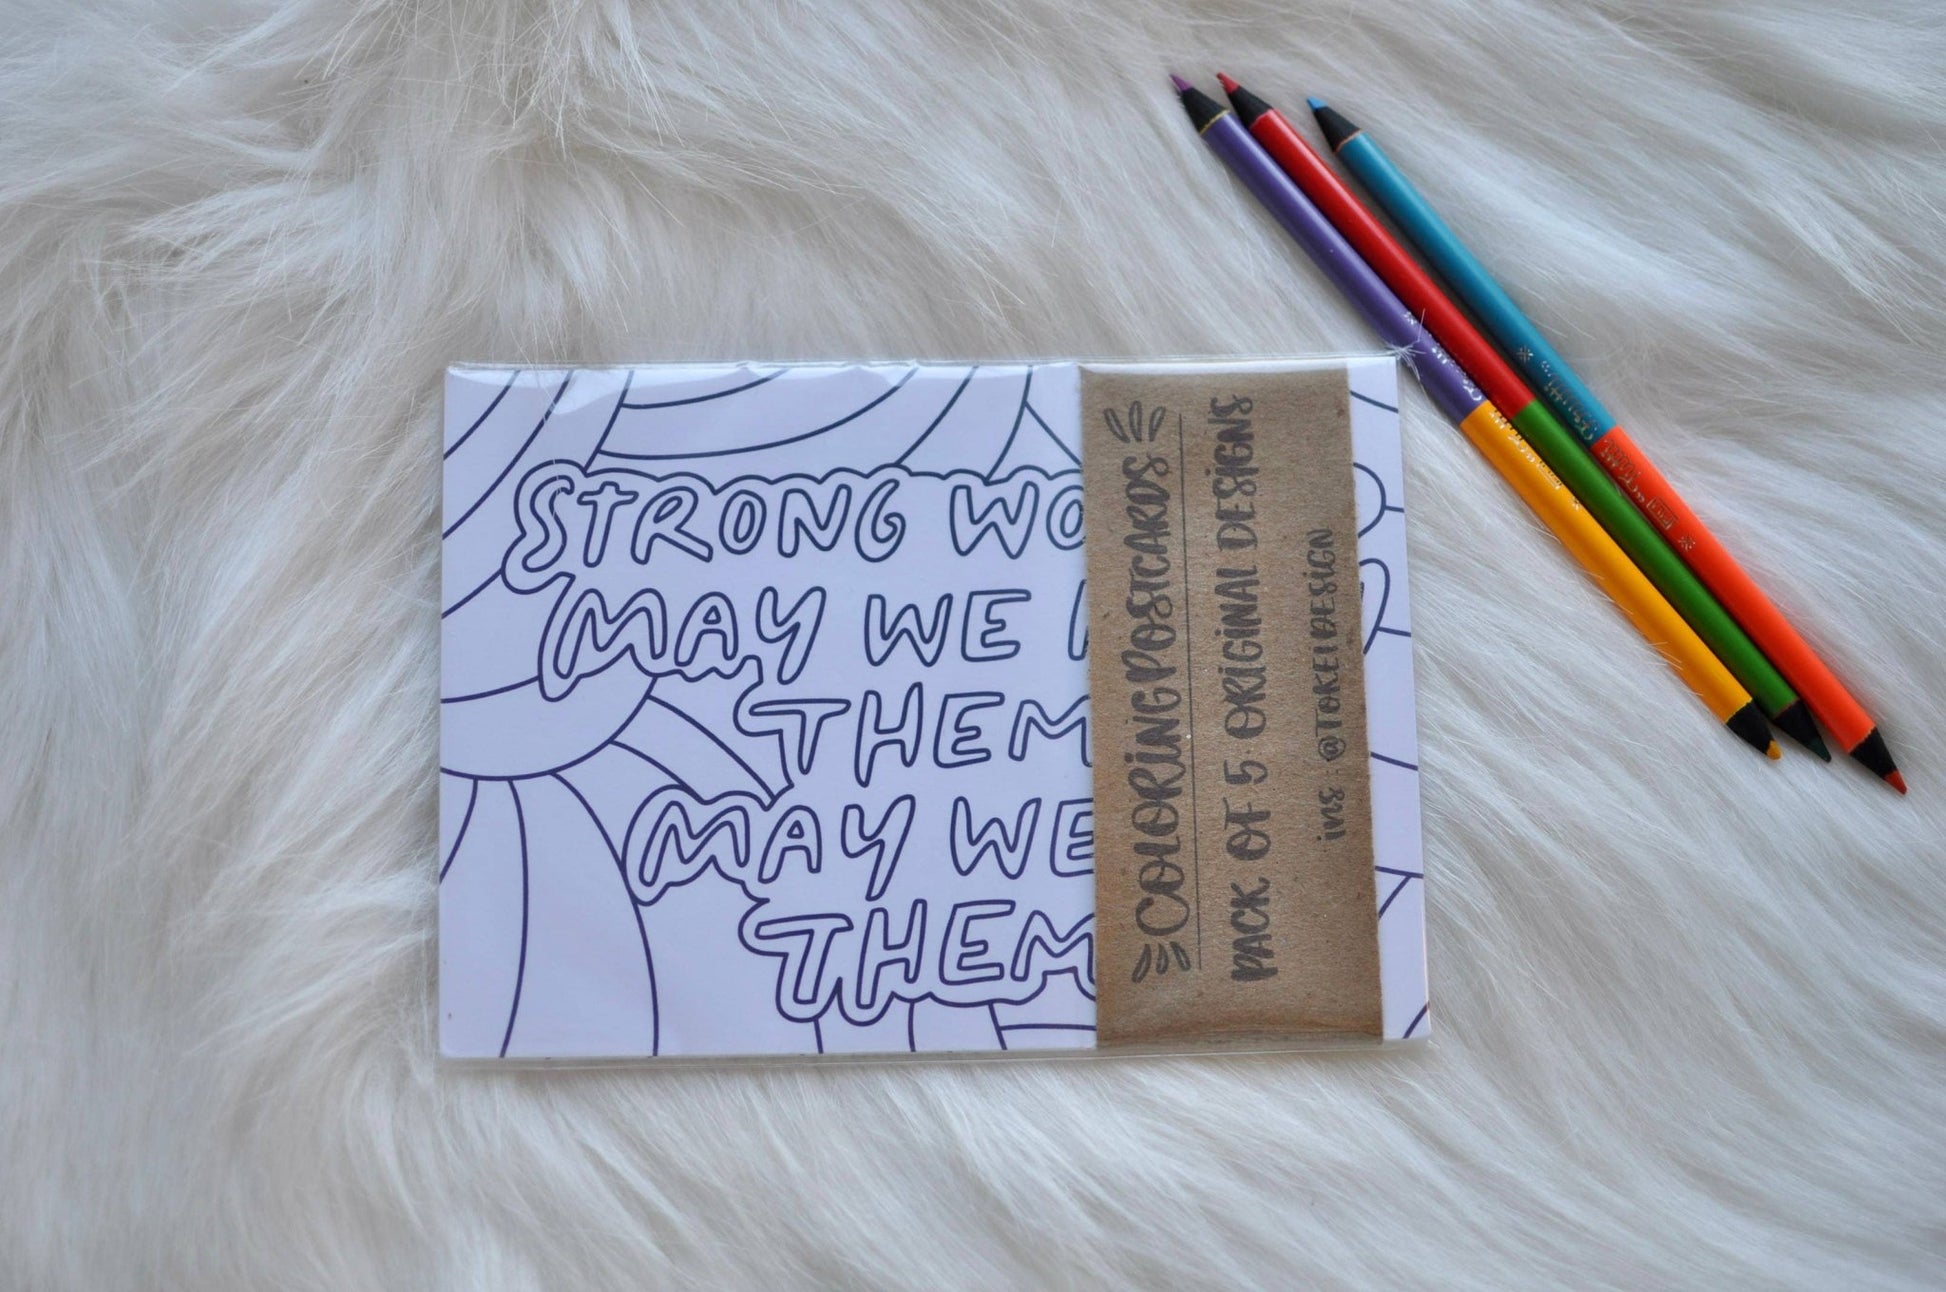 STRONG
MAY WE
THEM
MAY WE
THEM
COLORING POSTCARDS
PACK OF 5 ORIGINAL DESIGNS
ins:@TOKEIDESIGN